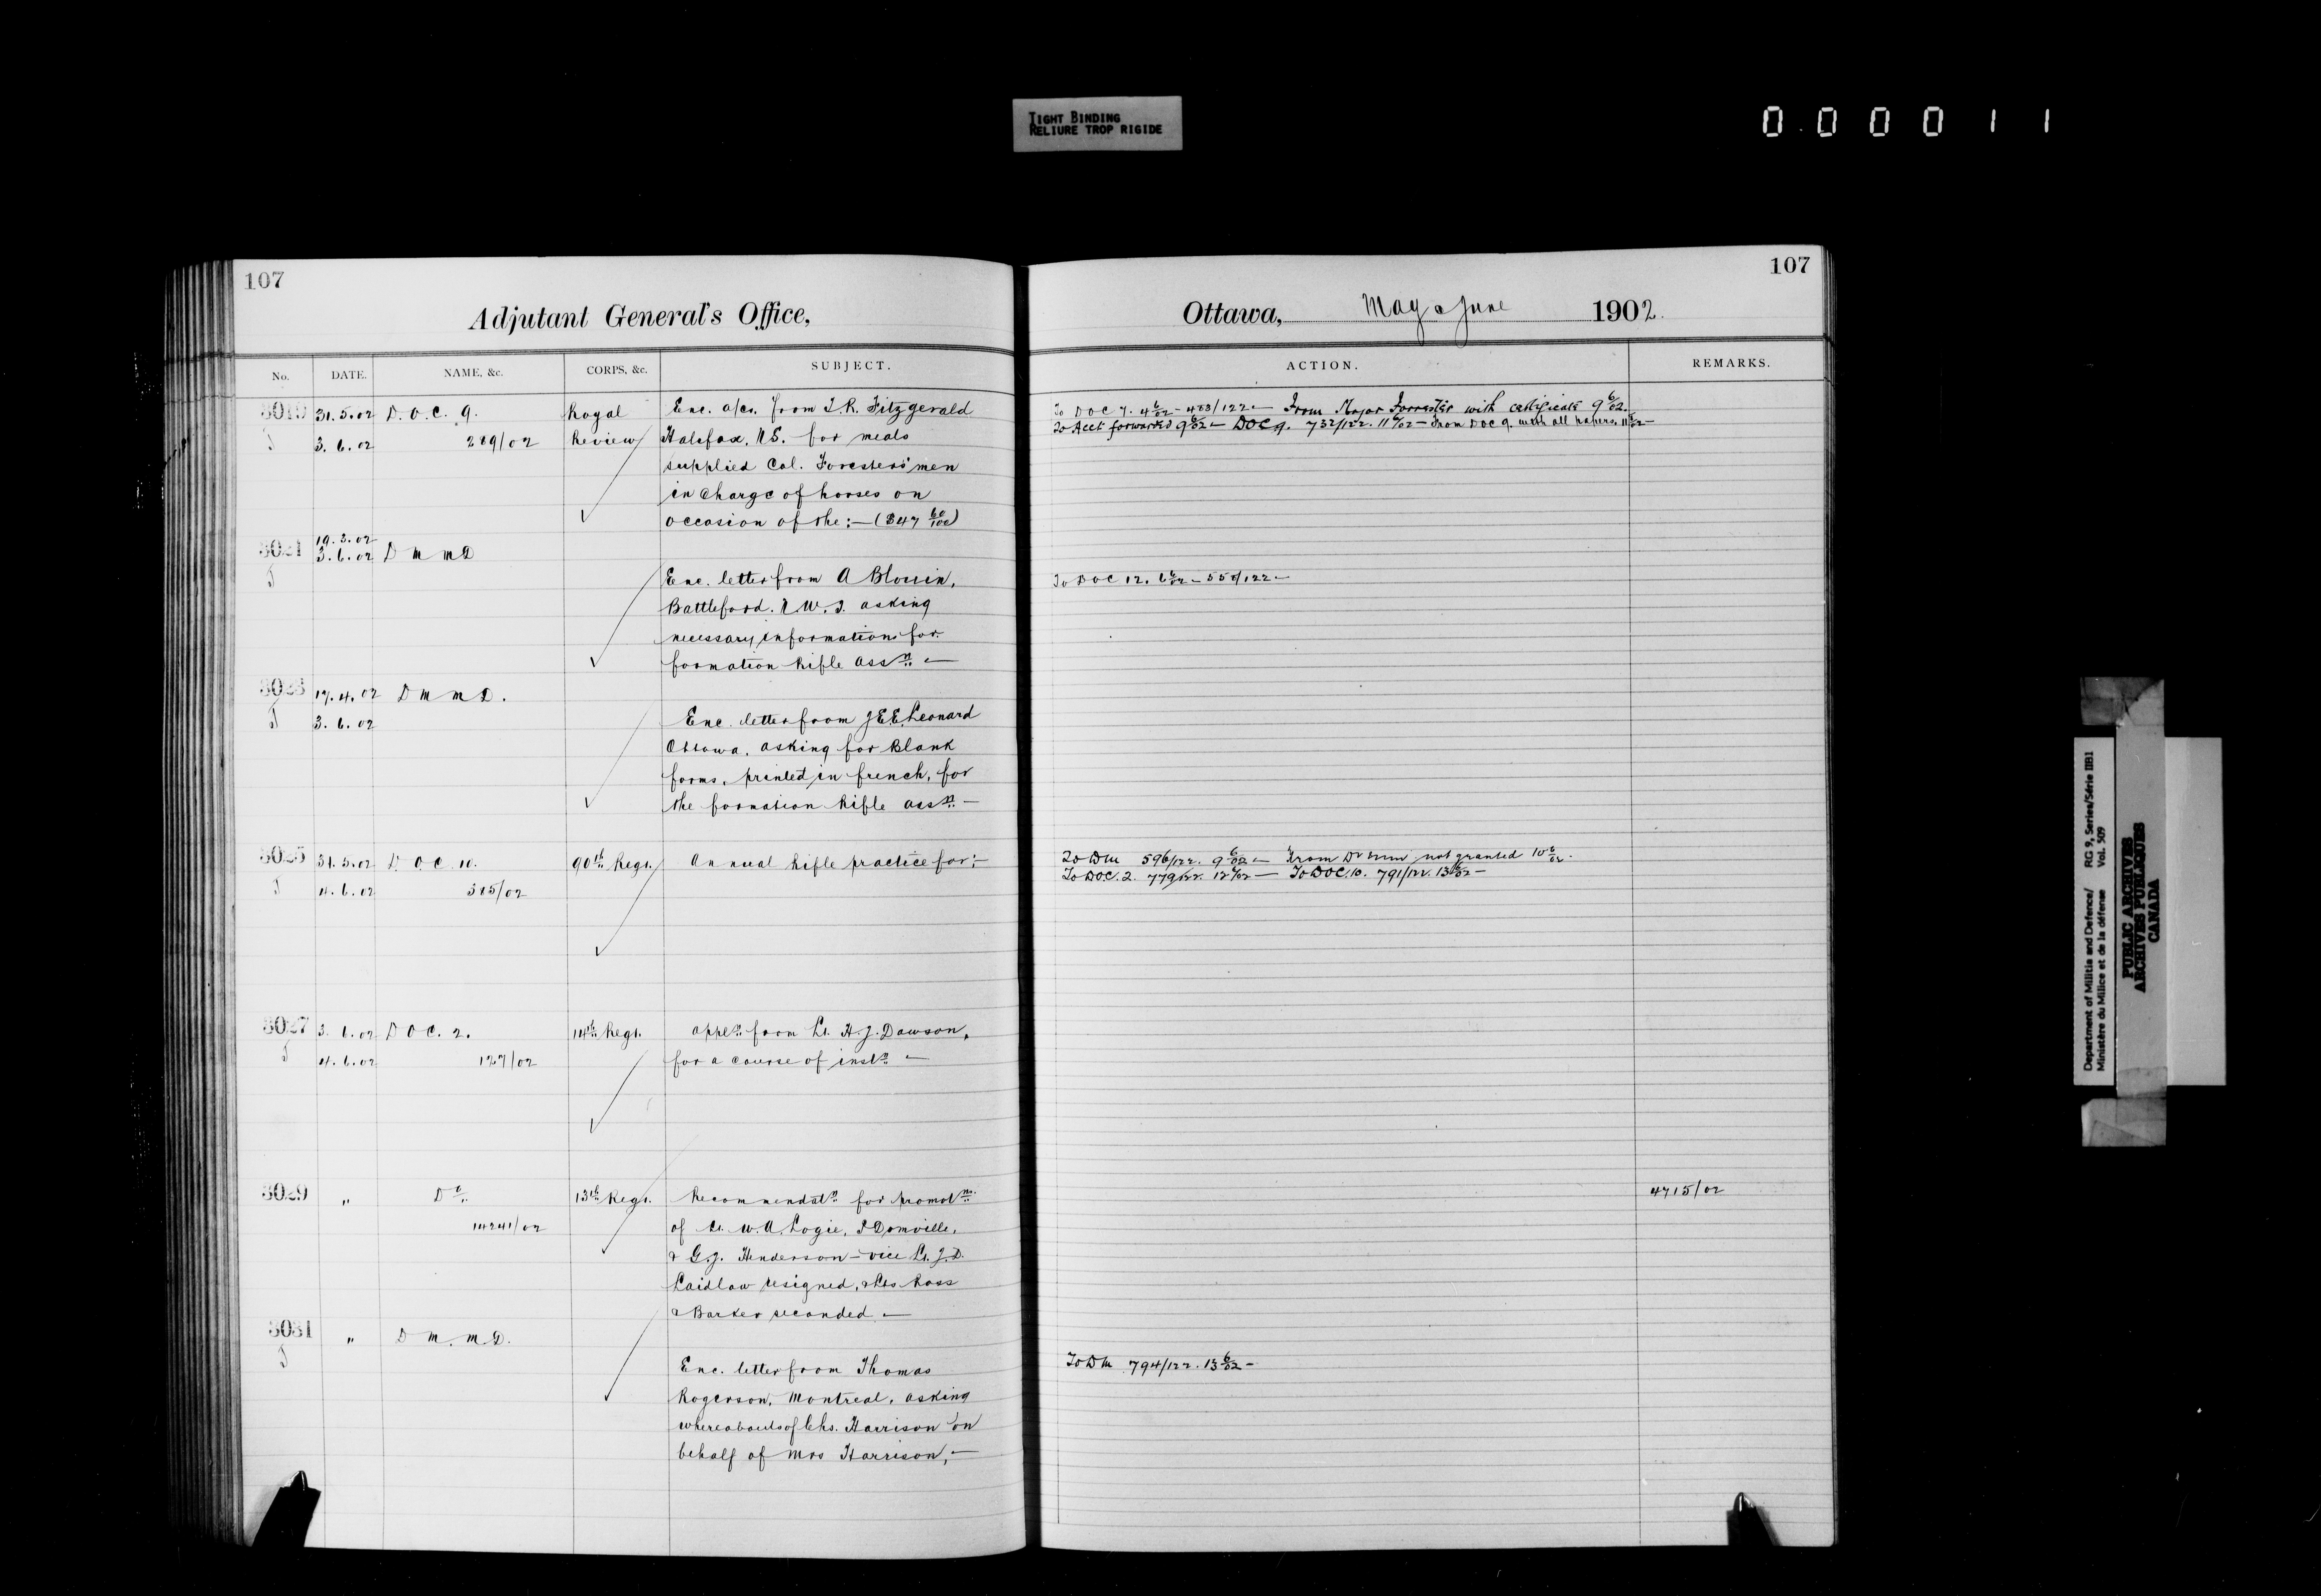 TIGHT BINDING
RELIURE TROP RIGIDE
0 0 0 0 1 1
107
Adjutant General's Office,
No. DATE. NAME, &c. CORPS, &c. SUBJECT.
8019 31.5.02 D.O.C. 9. Royal Enc. a/cs. from T.R. Fitzgerald
3.6.02 289/02 Review Halifax, N.S. for meals
supplied Col. Foresters' men
in Charge of horses on
occasion of the :— ($47 60/100)
8021 19.3.02
3.6.02 D M M D
Enc. letter from A Blouin,
Battleford. N.W.T. asking
necessary information for
formation Rifle Assn. —
8023 17.4.02 D M M D.
3.6.02 Enc. letter from J.E.E. Leonard
Ottawa. asking for Blank
forms, printed in french, for
the formation Rifle Assn. —
8025 31.5.02 D.O.C. 10. 90th Regt. Annual Rifle practice for :—
4.6.02 315/02
8027 3.6.02 D O C. 2. 14th Regt. Appln. from Lt. H.J. Dawson,
4.6.02 127/02 for a course of instn. —
8029 " Do. 13th Regt. Recommendatn for promotn.
14241/02 of Lt. W.A. Logie, Domville,
& G.J. Henderson — vice Lt. J.D.
Laidlaw resigned, & Lts Ross
& Barker seconded. —
8031 " D M. M D.
Enc. letter from Thomas
Rogerson, Montreal, asking
whereabouts of Chs. Harrison on
behalf of Mrs Harrison, —
107
Ottawa, May & June 1902.
ACTION. REMARKS.
To DOC 7. 4 6/02 - 483/122 — From Major Forrester with certificate 9 6/02.
To Acct forwarded 9 6/02 — DOC 9. 732/122. 11 6/02 — From DOC 9. with all papers.
To DOC 12. 6 6/02 — 558/122 —
To DM 596/122. 9 6/02 — From not granted 10 6/02.
To DOC. 2. 779/122. 12 6/02 — To DOC. 10. 791/122. 13 6/02 —
4715/02
To DM 794/122. 13 6/02 —
Department of Militia and Defence/ RG 9, Series/Série IIB1
Ministère du Milice et de la défense Vol. 509
PUBLIC ARCHIVES
ARCHIVES PUBLIQUES
CANADA